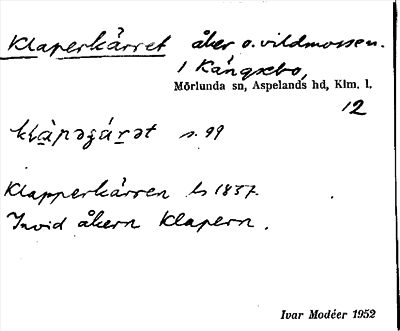 Klaperkärret åker o. vildmossen.
1 Kångsebo,
Mörlunda sn, Aspelands hd, Klm. l.
12
s. 99
Klapperkärren ls 1837.
Invid åkern Klapern.
Ivar Modéer 1952